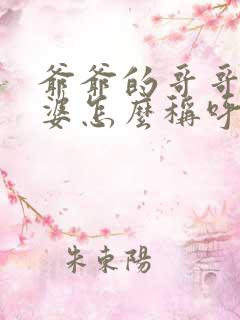 爺爺的哥哥
婆怎麼稱呼
朱東陽